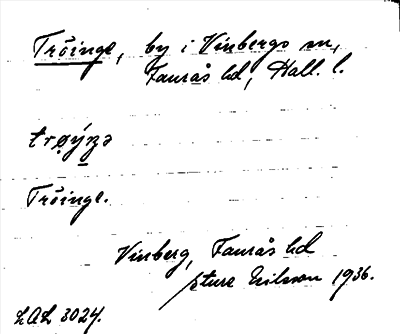 Tröinge, by i Vinbergs sn,
Faurås hd, Hall. l.
trøýŋə
Tröinge.
Vinberg, Faurås hd
Sture Nilsson 1936.
LAL 3024.